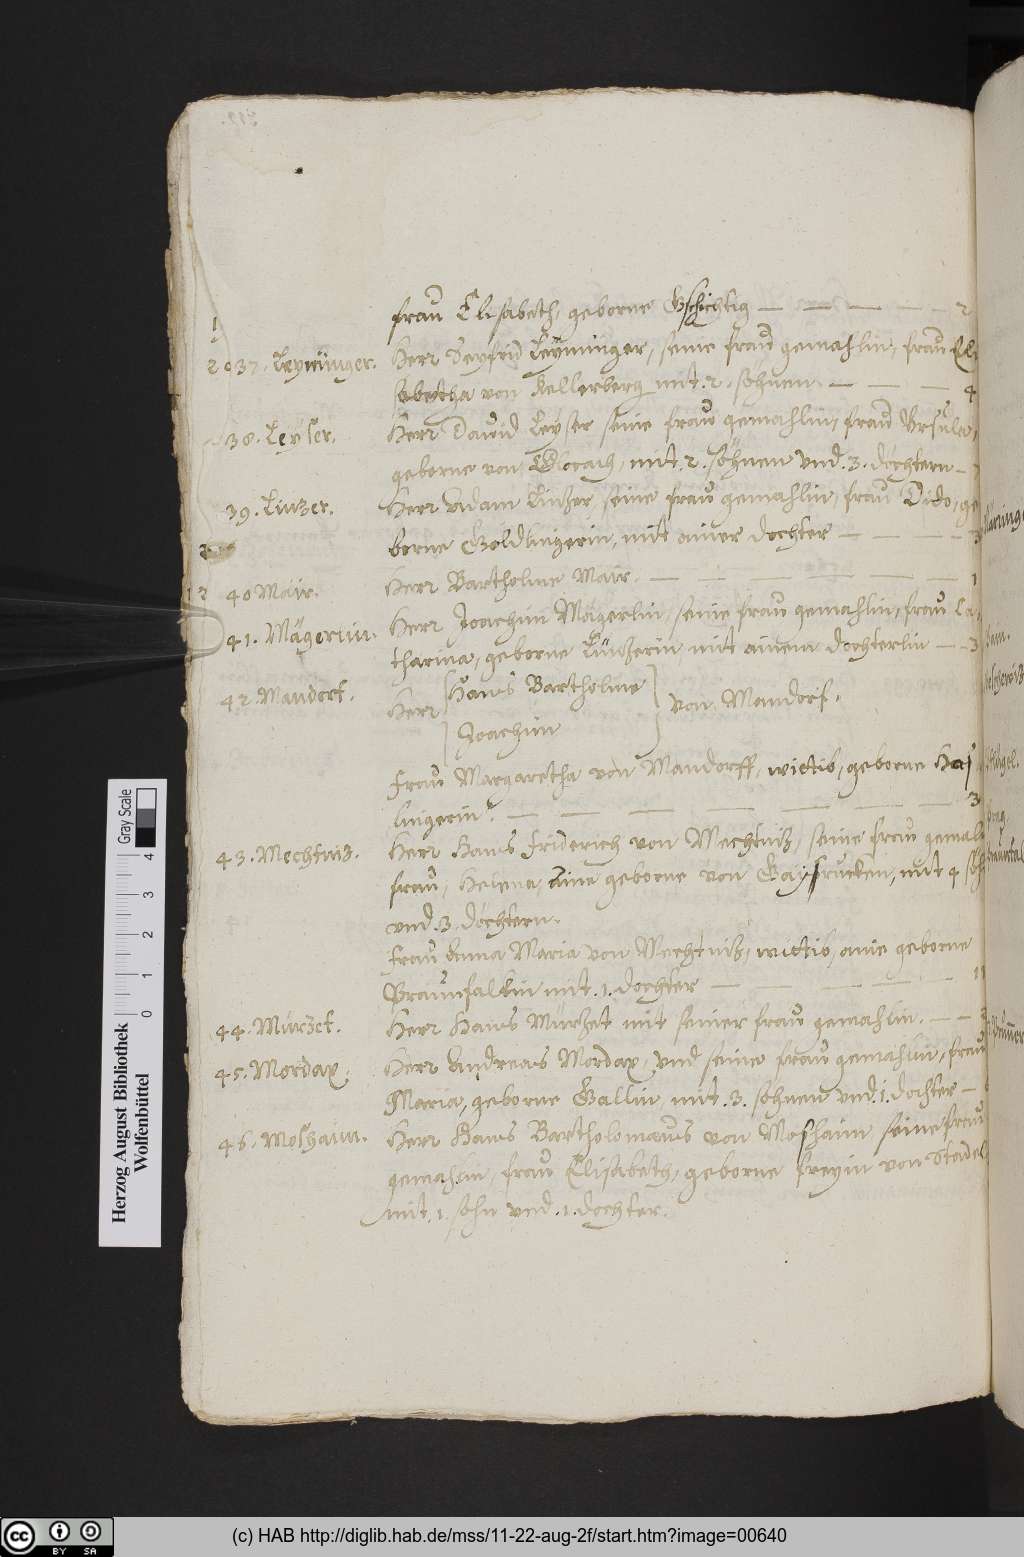 frau Elisabeth, geborne Gschichtig — — — — 2
37. Leyninger. Herr Seyfrid Leyninger, seine frau gemahlin, frau Eli
sabetha von Kellerberg mit .2. söhnen — — — 4
38. Leyser. Herr David Leyser seine frau gemahlin, frau Ursula,
geborne von mit .2. söhnen und .3. döchtern —
39. Linzer. Herr Adam Linzer, seine frau gemahlin, frau Dido, ge
borne Göldlingerin, mit ainer dochter — — — — 3
40 Mair. Herr Bartholme Mair. — — — — — 1
41. Mägerlin. Herr Joachim Mägerlin, seine frau gemahlin, frau Ca
tharina, geborne Linzerin mit ainem döchterlin — — 3
42. Mandorf. Herr Hans Bartholme
Joachim
von Mandorf.
Frau Margaretha von Mandorff, wittib, geborne Haj
lingerin. — — — — — — 3
43. Mechtniz. Herr Hans Friderich von Mechtniz, seine frau gemah
frau, Helena, aine geborne von Gaysrucken, mit 4 söh
und .3. döchtern.
Frau Anna Maria von Mechtniz, wittib, aine geborne
Braunfalkin mit .1. dochter — — — — 11
44. Murzet. Herr Hans Murzet mit seiner frau gemahlin. — —
45. Mordax. Herr Andreas Mordax, und seine frau gemahlin, frau
Maria, geborne Gallin, mit .3. söhnen und .1. dochter —
46. Moshaim. Herr Hans Bartholomaus von Moshaim seine frau
gemahlin, frau Elisabeth, geborne freyin von Stadel
mit .1. sohn und .1. dochter.
Herzog August Bibliothek
Wolfenbüttel
Gray Scale
0 1 2 3 4
(c) HAB http://diglib.hab.de/mss/11-22-aug-2f/start.htm?image=00640
cc BY SA